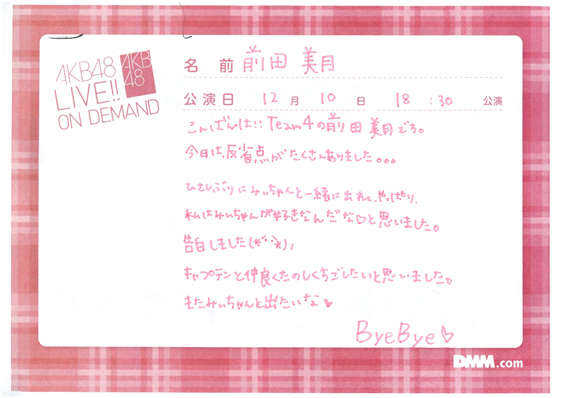 AKB48
LIVE!!
ON DEMAND
AKB
48
名 前 前田 美月
公演日 12 月 10 日 18 : 30 公演
こんばんは!! Team4の前田 美月です。
今日は、反省点がたくさんありました。。。
ひさしぶりにみぃちゃんと一緒に出れて、やっぱり、
私はみぃちゃんが好きなんだな♡と思いました。
告白しました(*ˊᵕˋ*)ﾉ
キャプテンと仲良くたのしくちごしたいと思いました。
またみぃちゃんと出たいな♥
ByeBye♡
DMM.com